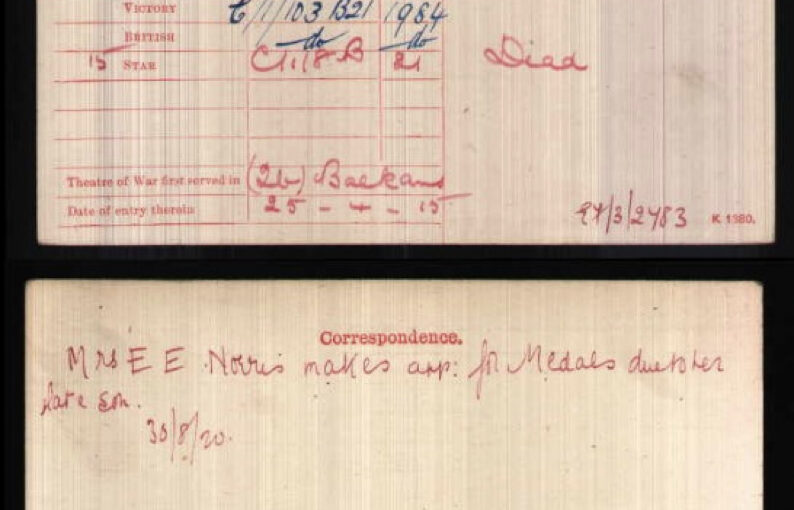 VICTORY C/1/103 B21 1984
BRITISH do do
15 STAR C/1/8B 21 Died
Theatre of War first served in (2b) Balkans
Date of entry therein 25 - 4 - 15
K 1380.
Correspondence.
Mrs E E Norris makes app: for Medals due to her
late son.
30/8/20.